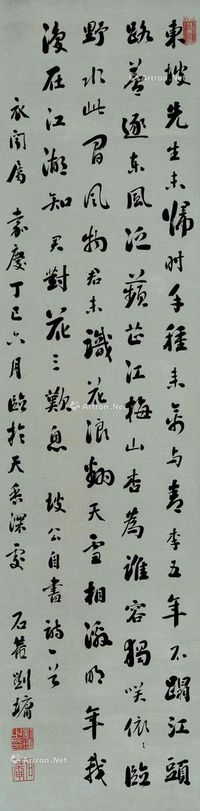 東坡先生未歸時手種來禽与青李五年不蹋江頭
路夢逐東風泛蘋芷江梅山杏為誰容獨咲依〻臨
野水此間風物君未識花浪翻天雪相激明年我
復在江湖知君對花三歎息 坡公自書詩一首
屬 嘉慶丁巳六月臨於天香深處 石菴劉墉
Artron.Net
Artron.Net
Artron.Net